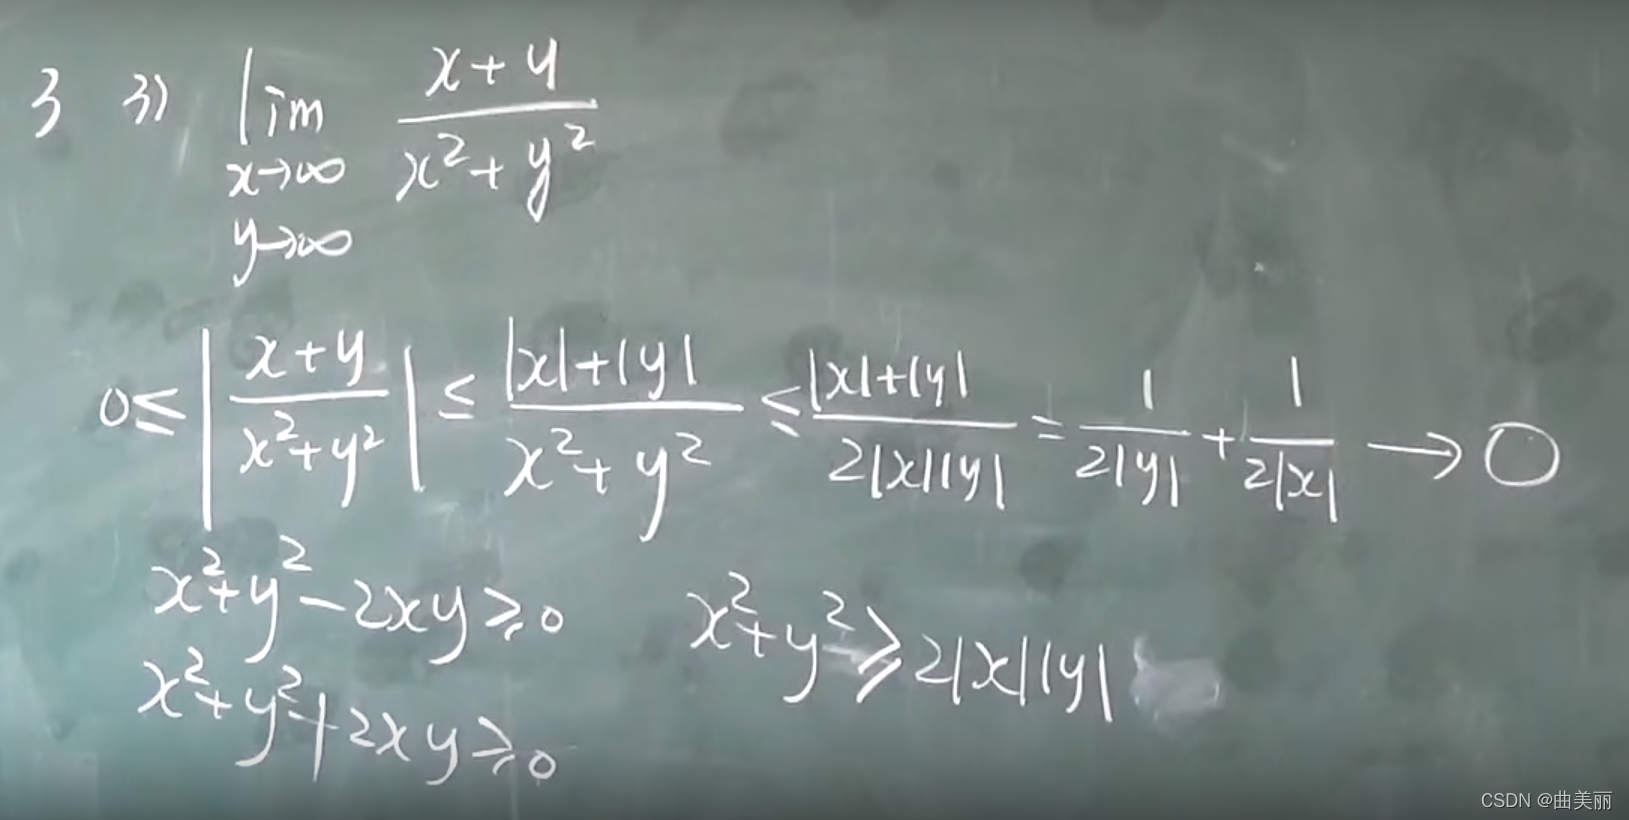 3 3) lim x+y / x²+y²
x→∞
y→∞
0≤ |x+y / x²+y²| ≤ |x|+|y| / x²+y² ≤ |x|+|y| / 2|x||y| = 1 / 2|y| + 1 / 2|x| → 0
x²+y²-2xy≥0 x²+y²≥2|x||y|
x²+y²+2xy≥0
CSDN @曲美丽